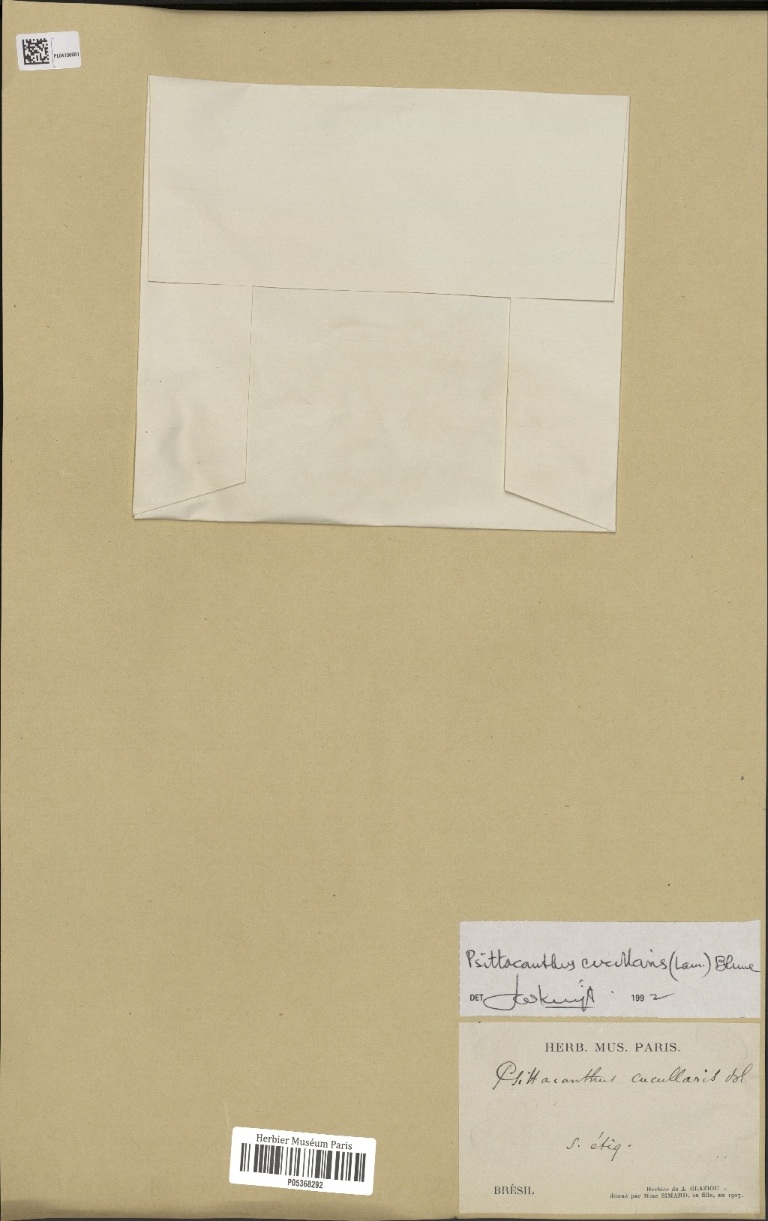 Psittacanthus cucullaris (Lam.) Blume
DET 1992
HERB. MUS. PARIS.
Psittacanthus cucullaris Bl
s. étiq.
BRÉSIL
Herbier de A. GLAZIOU
donné par Mme SIMARD, sa fille, en 1907.
Herbier Muséum Paris
P05368292